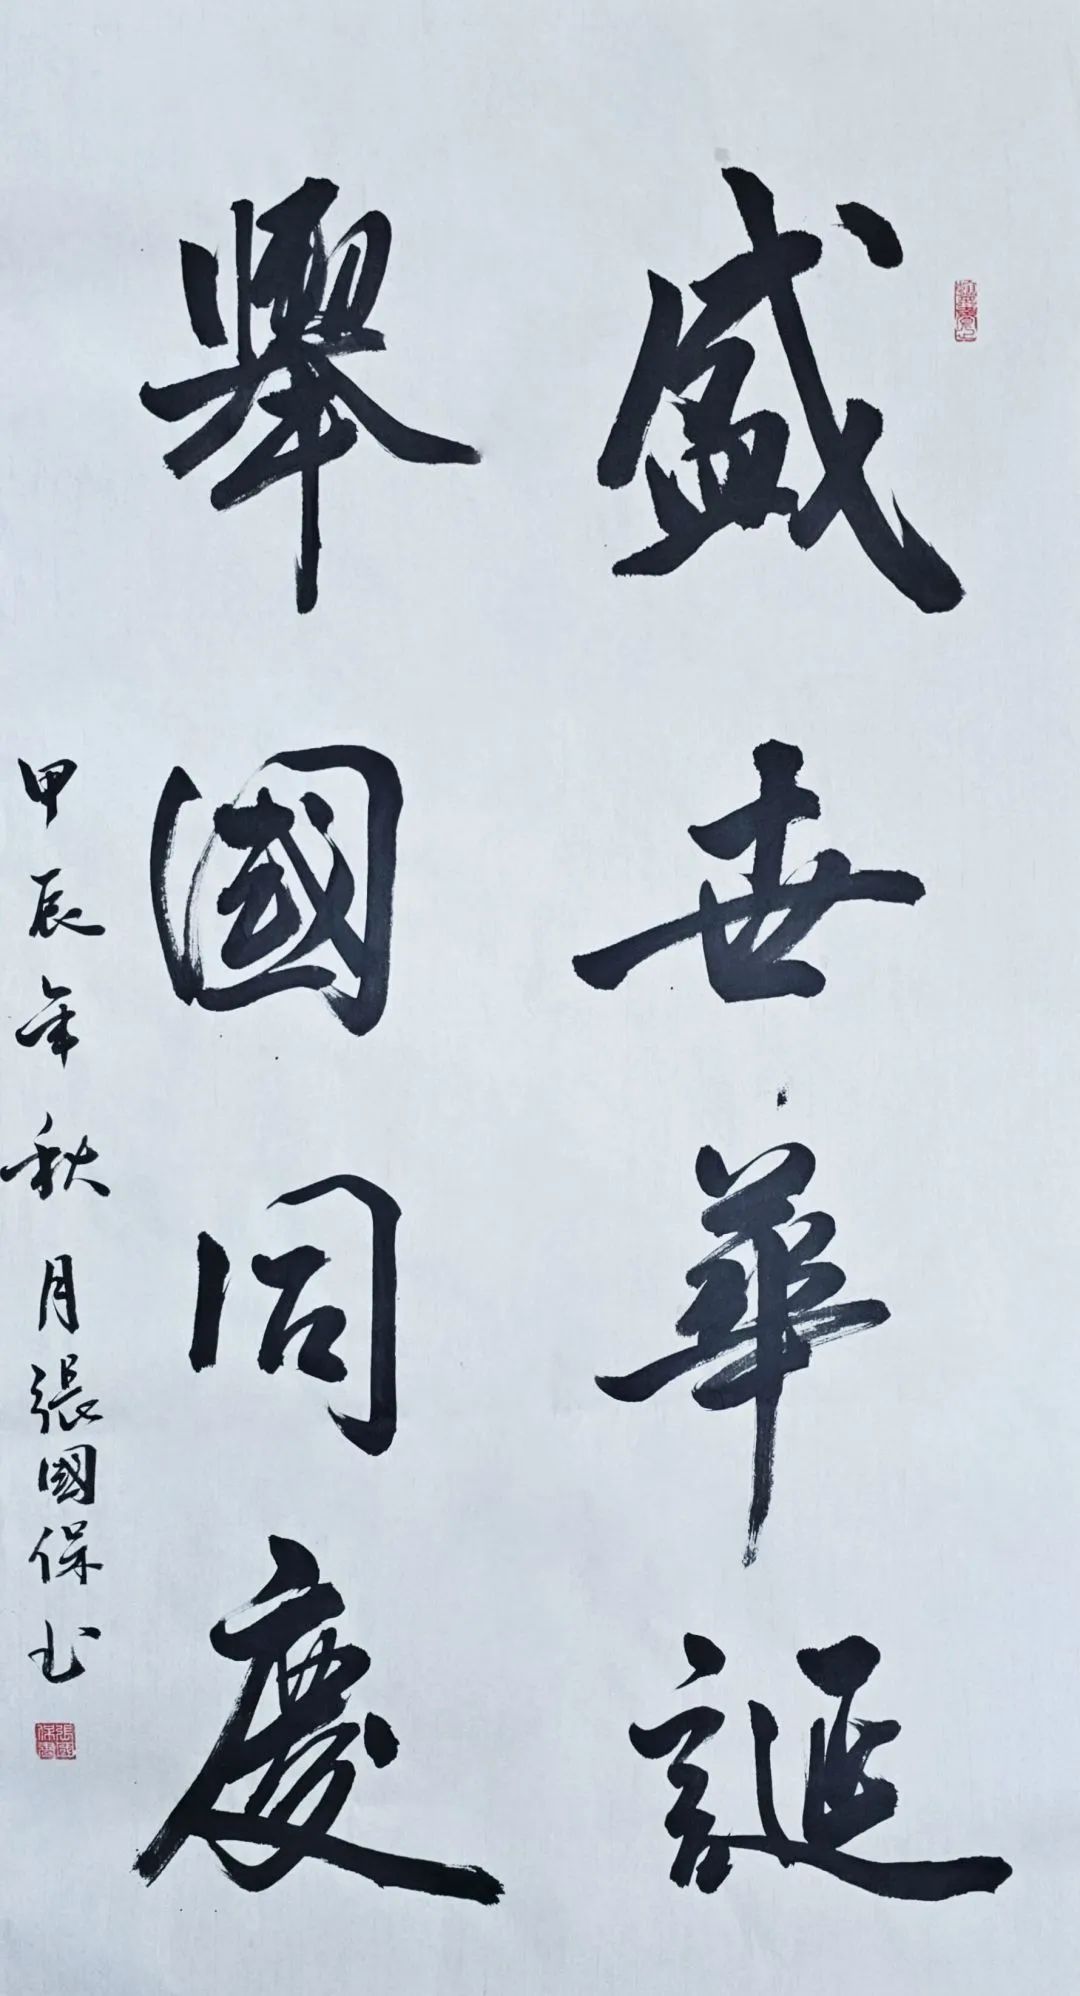 盛世華誕
舉國同慶
甲辰年秋月張國保书